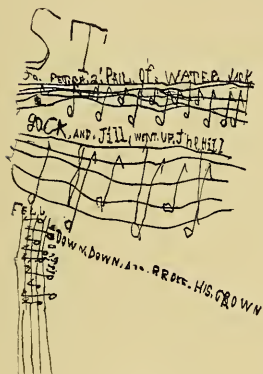 ST
To. FETCH. a. PAIL. Of. WATER JACK
JACK. AND. Jill. WENT. UP. The Hill
FELL
DOWN. DOWN. And. BROKE. HIS. CROWN